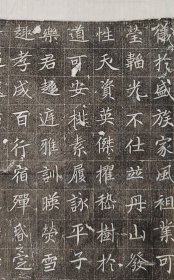 儀於盛族家風祖業可
瑩軸光不仕並丹山發
性天資英傑擢嵇樹於
道可安排素履詠平子
樂君趨庭雅訓暎螢雪
趣孝成百行霜殫昏定